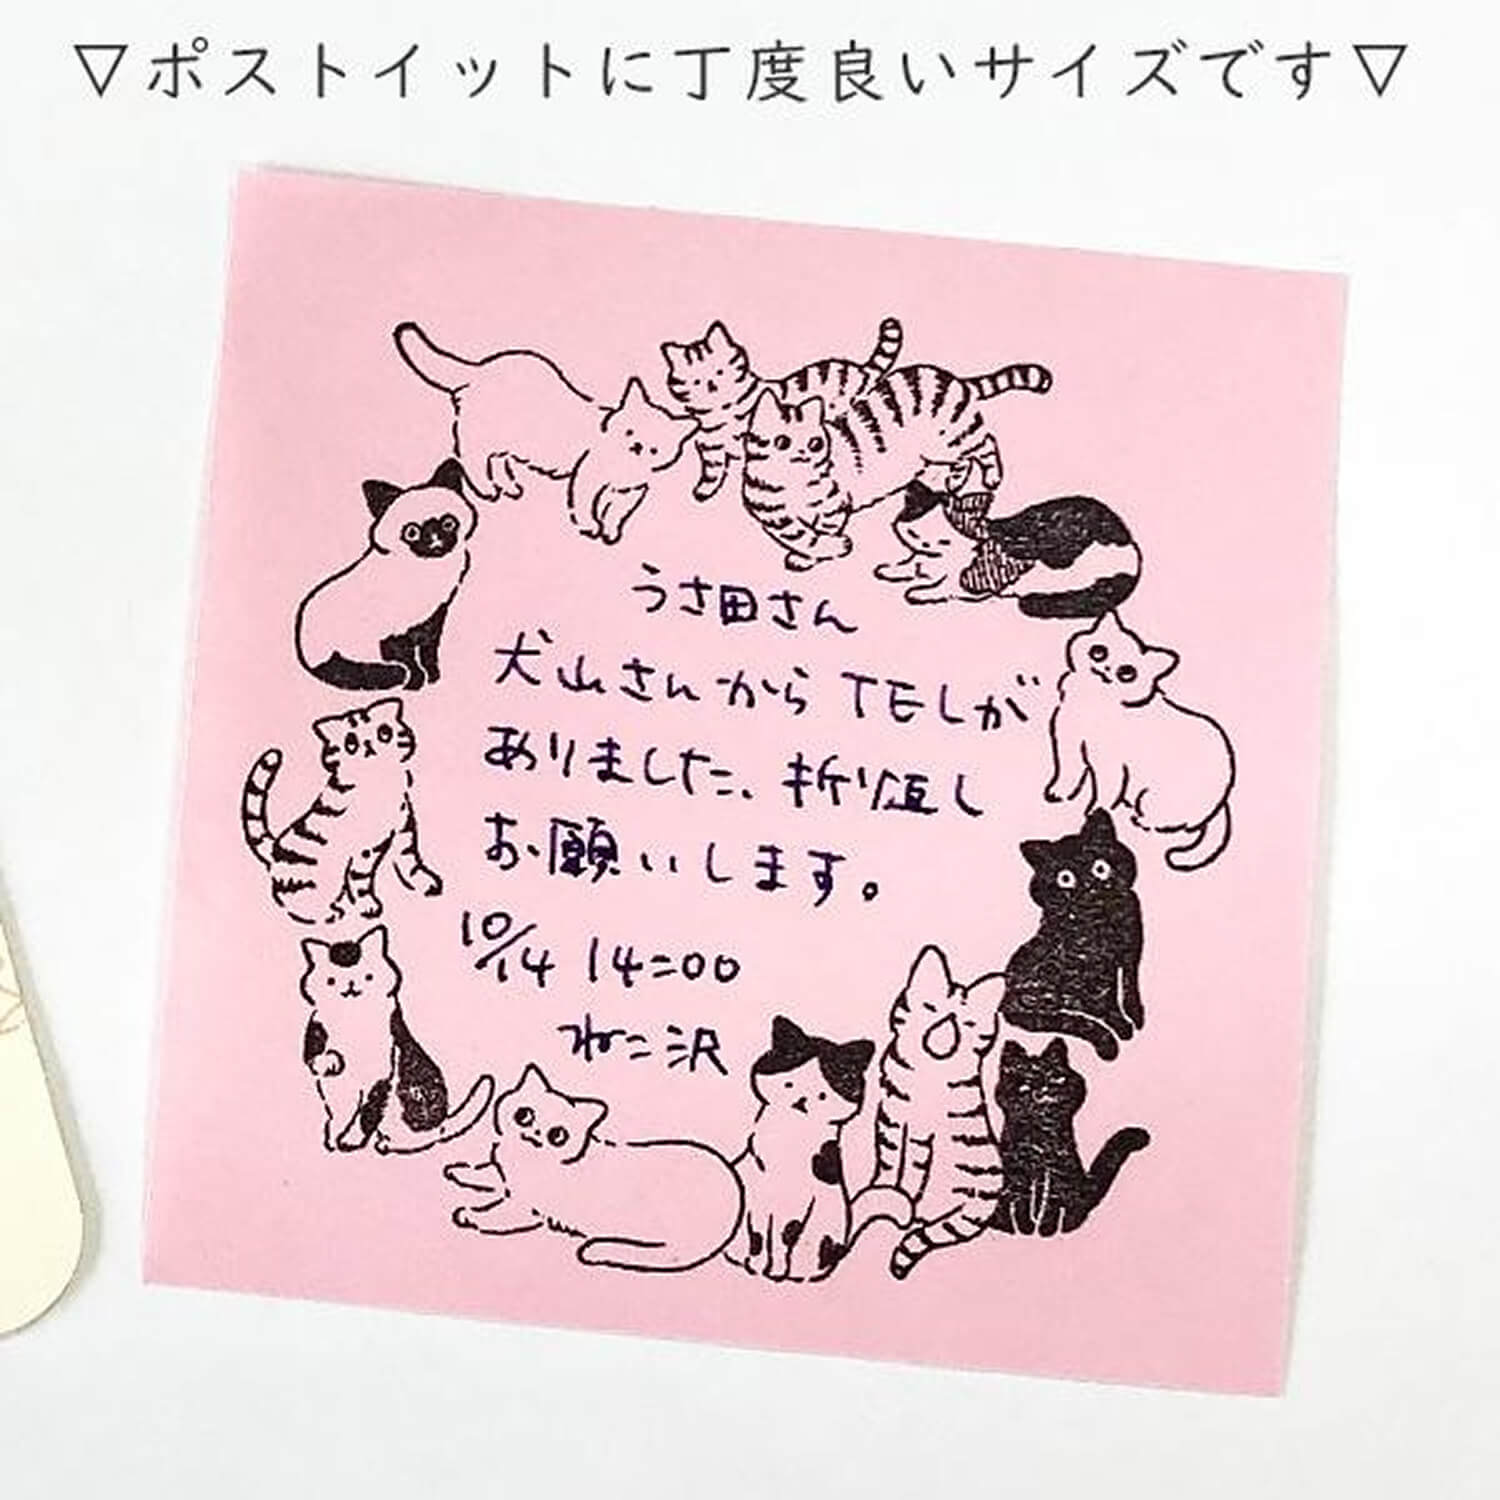 ▽ポストイットに丁度良いサイズです▽
うさ田さん
犬山さんから TELが
ありました、折り返し
お願いします。
10/14 14:00
ねこ沢